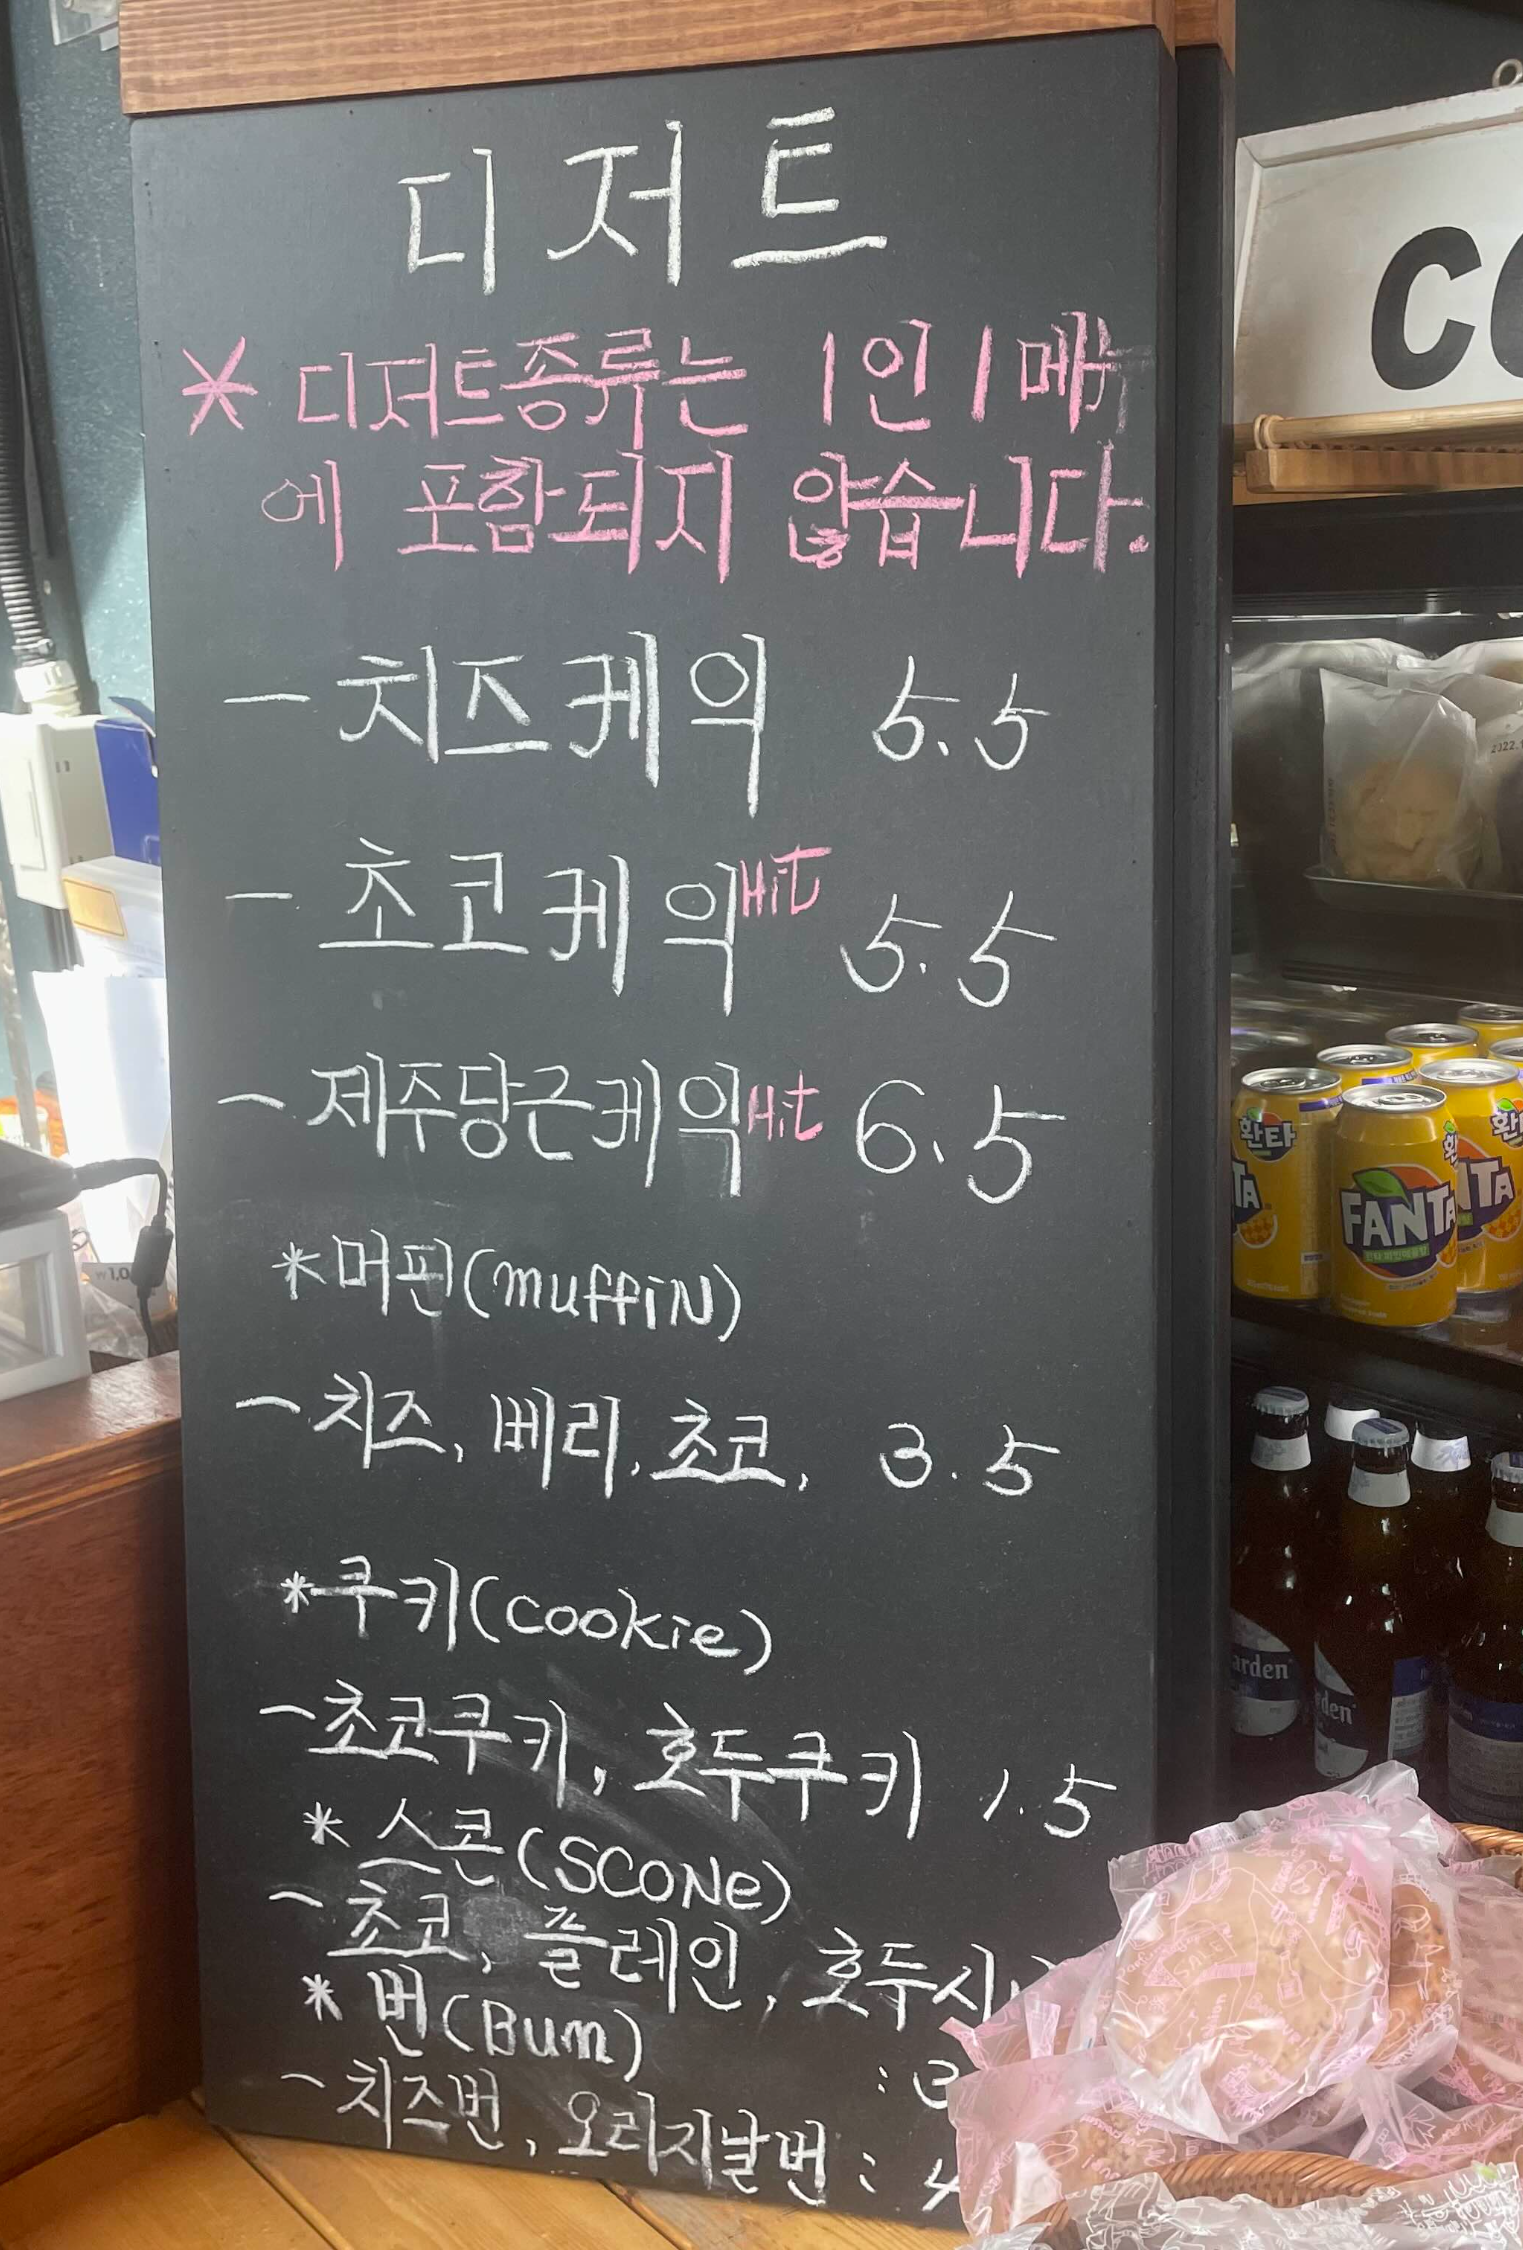 디저트
* 디저트종류는 1인 1메뉴
에 포함되지 않습니다.
- 치즈케익 5.5
- 초코케익 Hit 5.5
- 제주당근케익 Hit 6.5
*머핀(muffiN)
- 치즈, 베리, 초코, 3.5
*쿠키(cookie)
- 초코쿠키, 호두쿠키 1.5
* 스콘(SCONe)
- 초코, 플레인, 호두시나
* 번(Bun)
: 3
- 치즈번, 오리지날번 : 4
CO
2022.1
환타
FANTA
TA
arden
rden
₩1,0